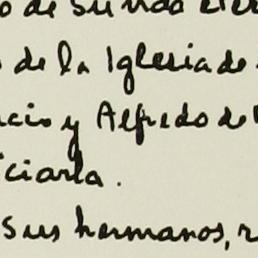 o de su vida eter
de la Iglesia de
acio y Alfredo de
iciarla.
sus hermanos, r